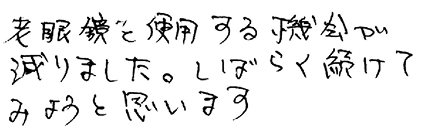 老眼鏡を使用する機会が
減りました。しばらく続けて
みようと思います